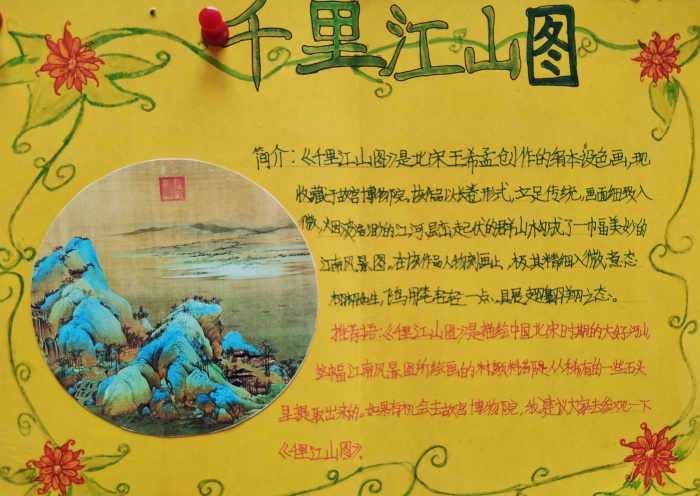 千里江山图
简介：《千里江山图》是北宋王希孟创作的绢本设色画，现
收藏于故宫博物院。该作品以长卷形式，立足传统，画面细致入
微，烟波浩渺的江河、层峦起伏的群山构成了一幅美妙的
江南风景图。在该作品人物刻画上，极其精细入微，意态
栩栩如生，飞鸟用笔轻轻一点，具展翅翱翔之态。
推荐语：《千里江山图》是描绘中国北宋时期的大好河山，
这幅江南风景图的绘画的材料都是从稀有的一些石头
里提取出来的。如果有机会去故宫博物院，我建议大家去参观一下
《千里江山图》。